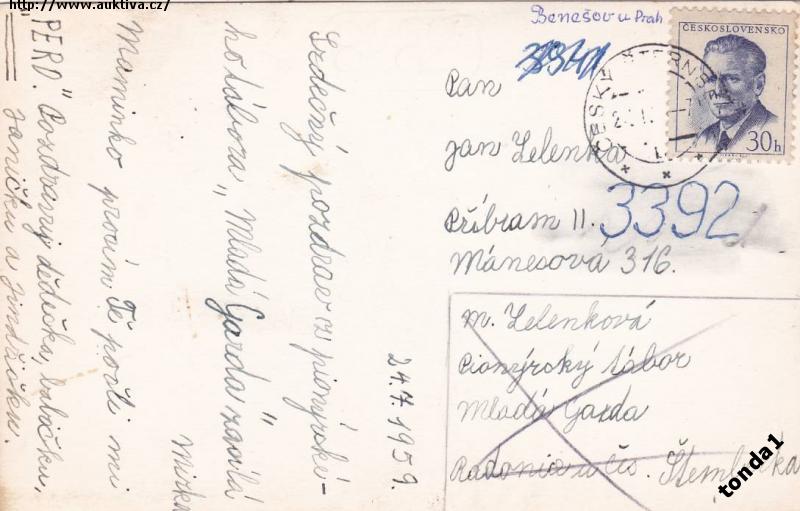 http://www.auktiva.cz/
Srdečný pozdrav z pionýrské-
ho tábora „Mladá Garda" zasílá
Mirka
Maminko prosím Tě pošli mi
„PERO." Pozdravuj dědečka, babičku,
Janičku a Jindřišku.
24.7.1959.
Benešov u Prah
ČESKOSLOVENSKO
30h
Pan
Jan Zelenka
Příbram II.
3392
Mánesová 316.
M. Zelenková
Pionýrský tábor
Mladá Garda
Radonice u Čes. Šternberka
tonda1